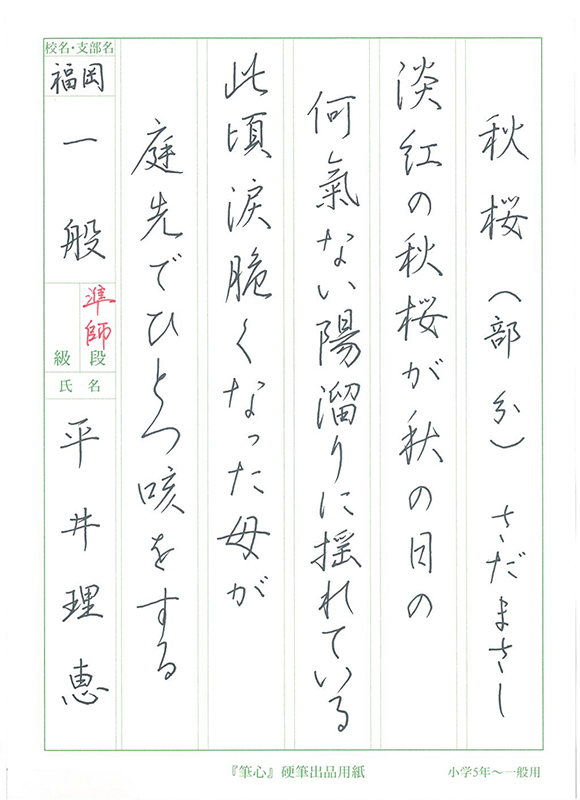 秋桜（部分）　さだまさし
淡紅の秋桜が秋の日の
何氣ない陽溜りに揺れている
此頃涙脆くなった母が
庭先でひとつ咳をする
校名・支部名
福岡
一般
準師
級 段
氏名
平井理恵
『筆心』硬筆出品用紙
小学5年～一般用